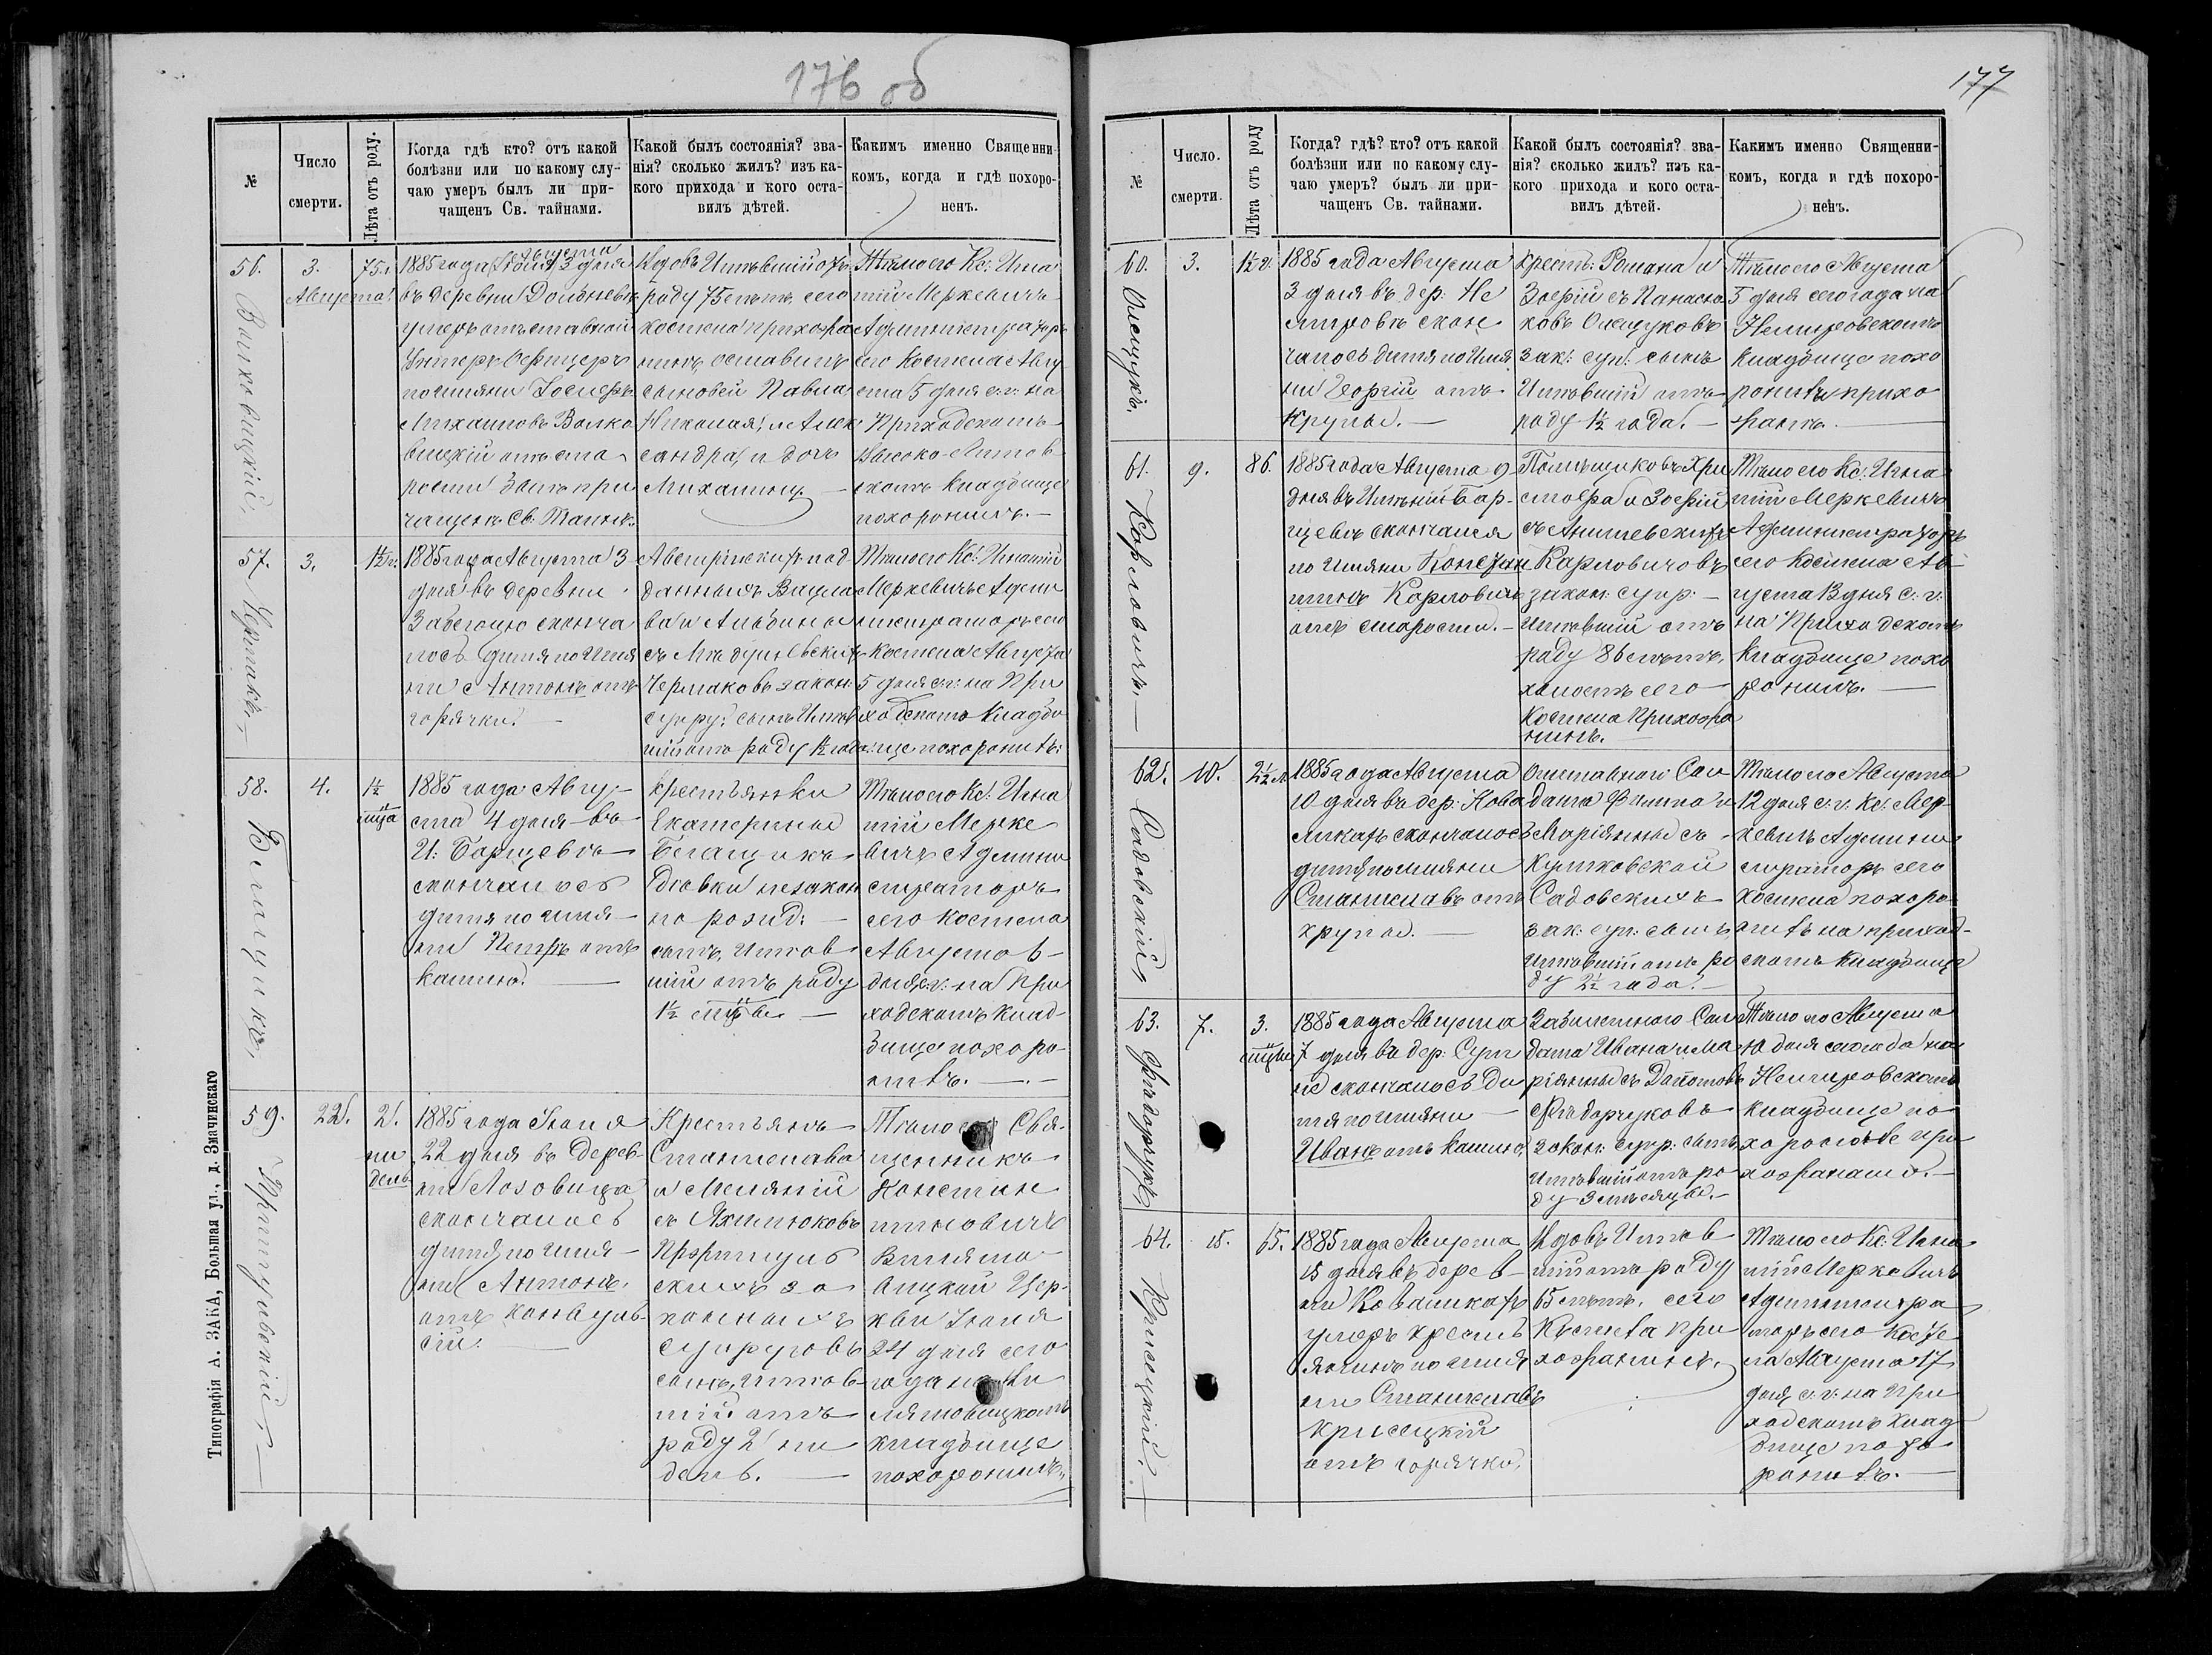 176 об
№
Число
смерти.
Лѣта отъ роду.
Когда гдѣ кто? отъ какой
болѣзни или по какому слу-
чаю умеръ былъ ли при-
чащенъ Св. тайнами.
Какой былъ состоянія? зва-
нія? сколько жилъ? изъ ка-
кого прихода и кого оста-
вилъ дѣтей.
Какимъ именно Священни-
комъ, когда и гдѣ похоро-
ненъ.
56.
3.
Августа
75
1885 года 3 дня
въ деревни
умеръ отставной
Унтеръ Офицеръ
по имяни Іосифъ
Михаиловъ Волко
вицкій отъ ста
рости бывъ при
чащенъ Св. Таинъ.
Вдовъ Имѣвшій отъ
роду 75 лѣтъ сего
костела прихожа
нинъ оставилъ
сыновей Павла,
Николая, и Алек
сандра, и дочь
Михалину.
Тѣло его Кс: Игна
тій Меркевичъ
Администраторъ
сего костела Авгу
ста 5 дня с. г. на
Приходскомъ
Высоко-Литов
скомъ кладбище
похоронилъ.
57.
Чермакъ.
3.
1½ г.
1885 года Августа 3
дня въ деревни
сконча
лось дитя по имя
ни Антонъ отъ
горячки.
Австрійскихъ под
данныхъ Вацла
ва и Альбины
съ
Чермаковъ закон:
супру: сынъ Имѣв
шій отъ роду 1½ года
Тѣло его Кс: Игнатій
Меркевичъ Адми
нистраторъ сего
костела Августа
5 дня с. г. на При
ходскомъ кладби
ще похоронилъ.
58.
4.
1½
1885 года Авгу-
ста 4 дня въ
И: Борщевъ
скончалось
дитя по имя-
ни Петръ отъ
кашлю.
Крестьянки
Екатерины
дѣвки незакон
но рожд:
сынъ, имѣв
шій отъ роду
1½
Тѣло его Кс: Игна
тій Мерке
вичъ Админи
страторъ
сего костела
Августа 6
дня с. г. на При
ходскомъ клад-
бище похоро-
нилъ.
59.
22.
2.
не
дель
1885 года Іюля
22 дня въ дерев-
ни Лозовица
скончалось
дитя по имя-
ни Антонъ,
отъ конвуль
сіи.
Крестьянъ
Станислава
и Меляніи
съ
скихъ за
конныхъ
супруговъ
сынъ, имѣв
шій отъ
роду 2 не
дель.
Тѣло его Свя
щенникъ
Констан
тиновичъ
Вилямо
вицкой Цер
кви Іюля
24 дня сего
года на Ви
лямовицкомъ
кладбище
похоронилъ.
Типографія А. ЗАКА, Большая ул., д. Змачинскаго
177
№
Число.
смерти.
Лѣта отъ роду
Когда? гдѣ? кто? отъ какой
болѣзни или по какому слу-
чаю умеръ? былъ ли при-
чащенъ Св. тайнами.
Какой былъ состоянія? зва-
нія? сколько жилъ? изъ ка-
кого прихода и кого оста-
вилъ дѣтей.
Какимъ именно Священни-
комъ, когда и гдѣ похоро-
ненъ.
60.
3.
1½ г.
1885 года Августа
3 дня въ дер. Не
скон
чалось дитя по имя
ни Георгій отъ
крупы.
Крест: Романа и
Зофіи съ Панасю
ковъ
зак: суп: сынъ
Имѣвшій отъ
роду 1½ года.
Тѣло его Августа
5 дня сего года на
Немировскомъ
кладбище похо
ронили прихо
жане.
61.
Карловичъ.
9.
86.
1885 года Августа 9
дня въ Имѣніи Бор-
щевъ скончался
по имяни Констан
тинъ Карловичъ
отъ старости.
Помѣщиковъ Хри
стофа и Зофіи
съ
Карловичовъ
закон: супр:
имѣвшій отъ
роду 86 лѣтъ,
холостъ сего
Костела Прихожа
нинъ.
Тѣло его Кс: Игна
тій Меркевичъ
Администраторъ
сего Костела Ав
густа 13 дня с. г.
на Приходскомъ
Кладбище похо
ронилъ.
62.
Садовскій
10.
2½ л.
1885 года Августа
10 дня въ дер:
скончалось
дитя по имяни
Станиславъ отъ
крупы.
Отставного Сол
дата Филипа и
Маріянны съ
Садовскихъ
зак: суп: сынъ,
имѣвшій отъ ро
ду 2½ года.
Тѣло его Августа
12 дня с. г. Кс: Мер
кевичъ Админи
страторъ сего
костела похоро
нилъ на приход-
скомъ кладбище
63.
7.
3.
1885 года Августа
7 дня въ дер:
скончалось ди
тя по имяни
Иванъ отъ кашлю.
Солдата Ивана и Ма
ріянны съ
закон: супр: сынъ
имѣвшій отъ ро
ду 3 мѣсяца.
Тѣло его Августа
10 дня сего года на
Немировскомъ
кладбище по
при
хожанами.
64.
Крисицкій.
15.
65.
1885 года Августа
15 дня въ дерев-
ни
умеръ кресть
янинъ по имя
ни Станиславъ
Крисицкій
отъ горячки.
Вдовъ Имѣв
шій отъ роду
65 лѣтъ, сего
Костела при
хожанинъ.
Тѣло его Кс: Игна
тій Меркевичъ
Администра
торъ сего Косте
ла Августа 17
дня с. г. на При
ходскомъ клад
бище похо
ронилъ.